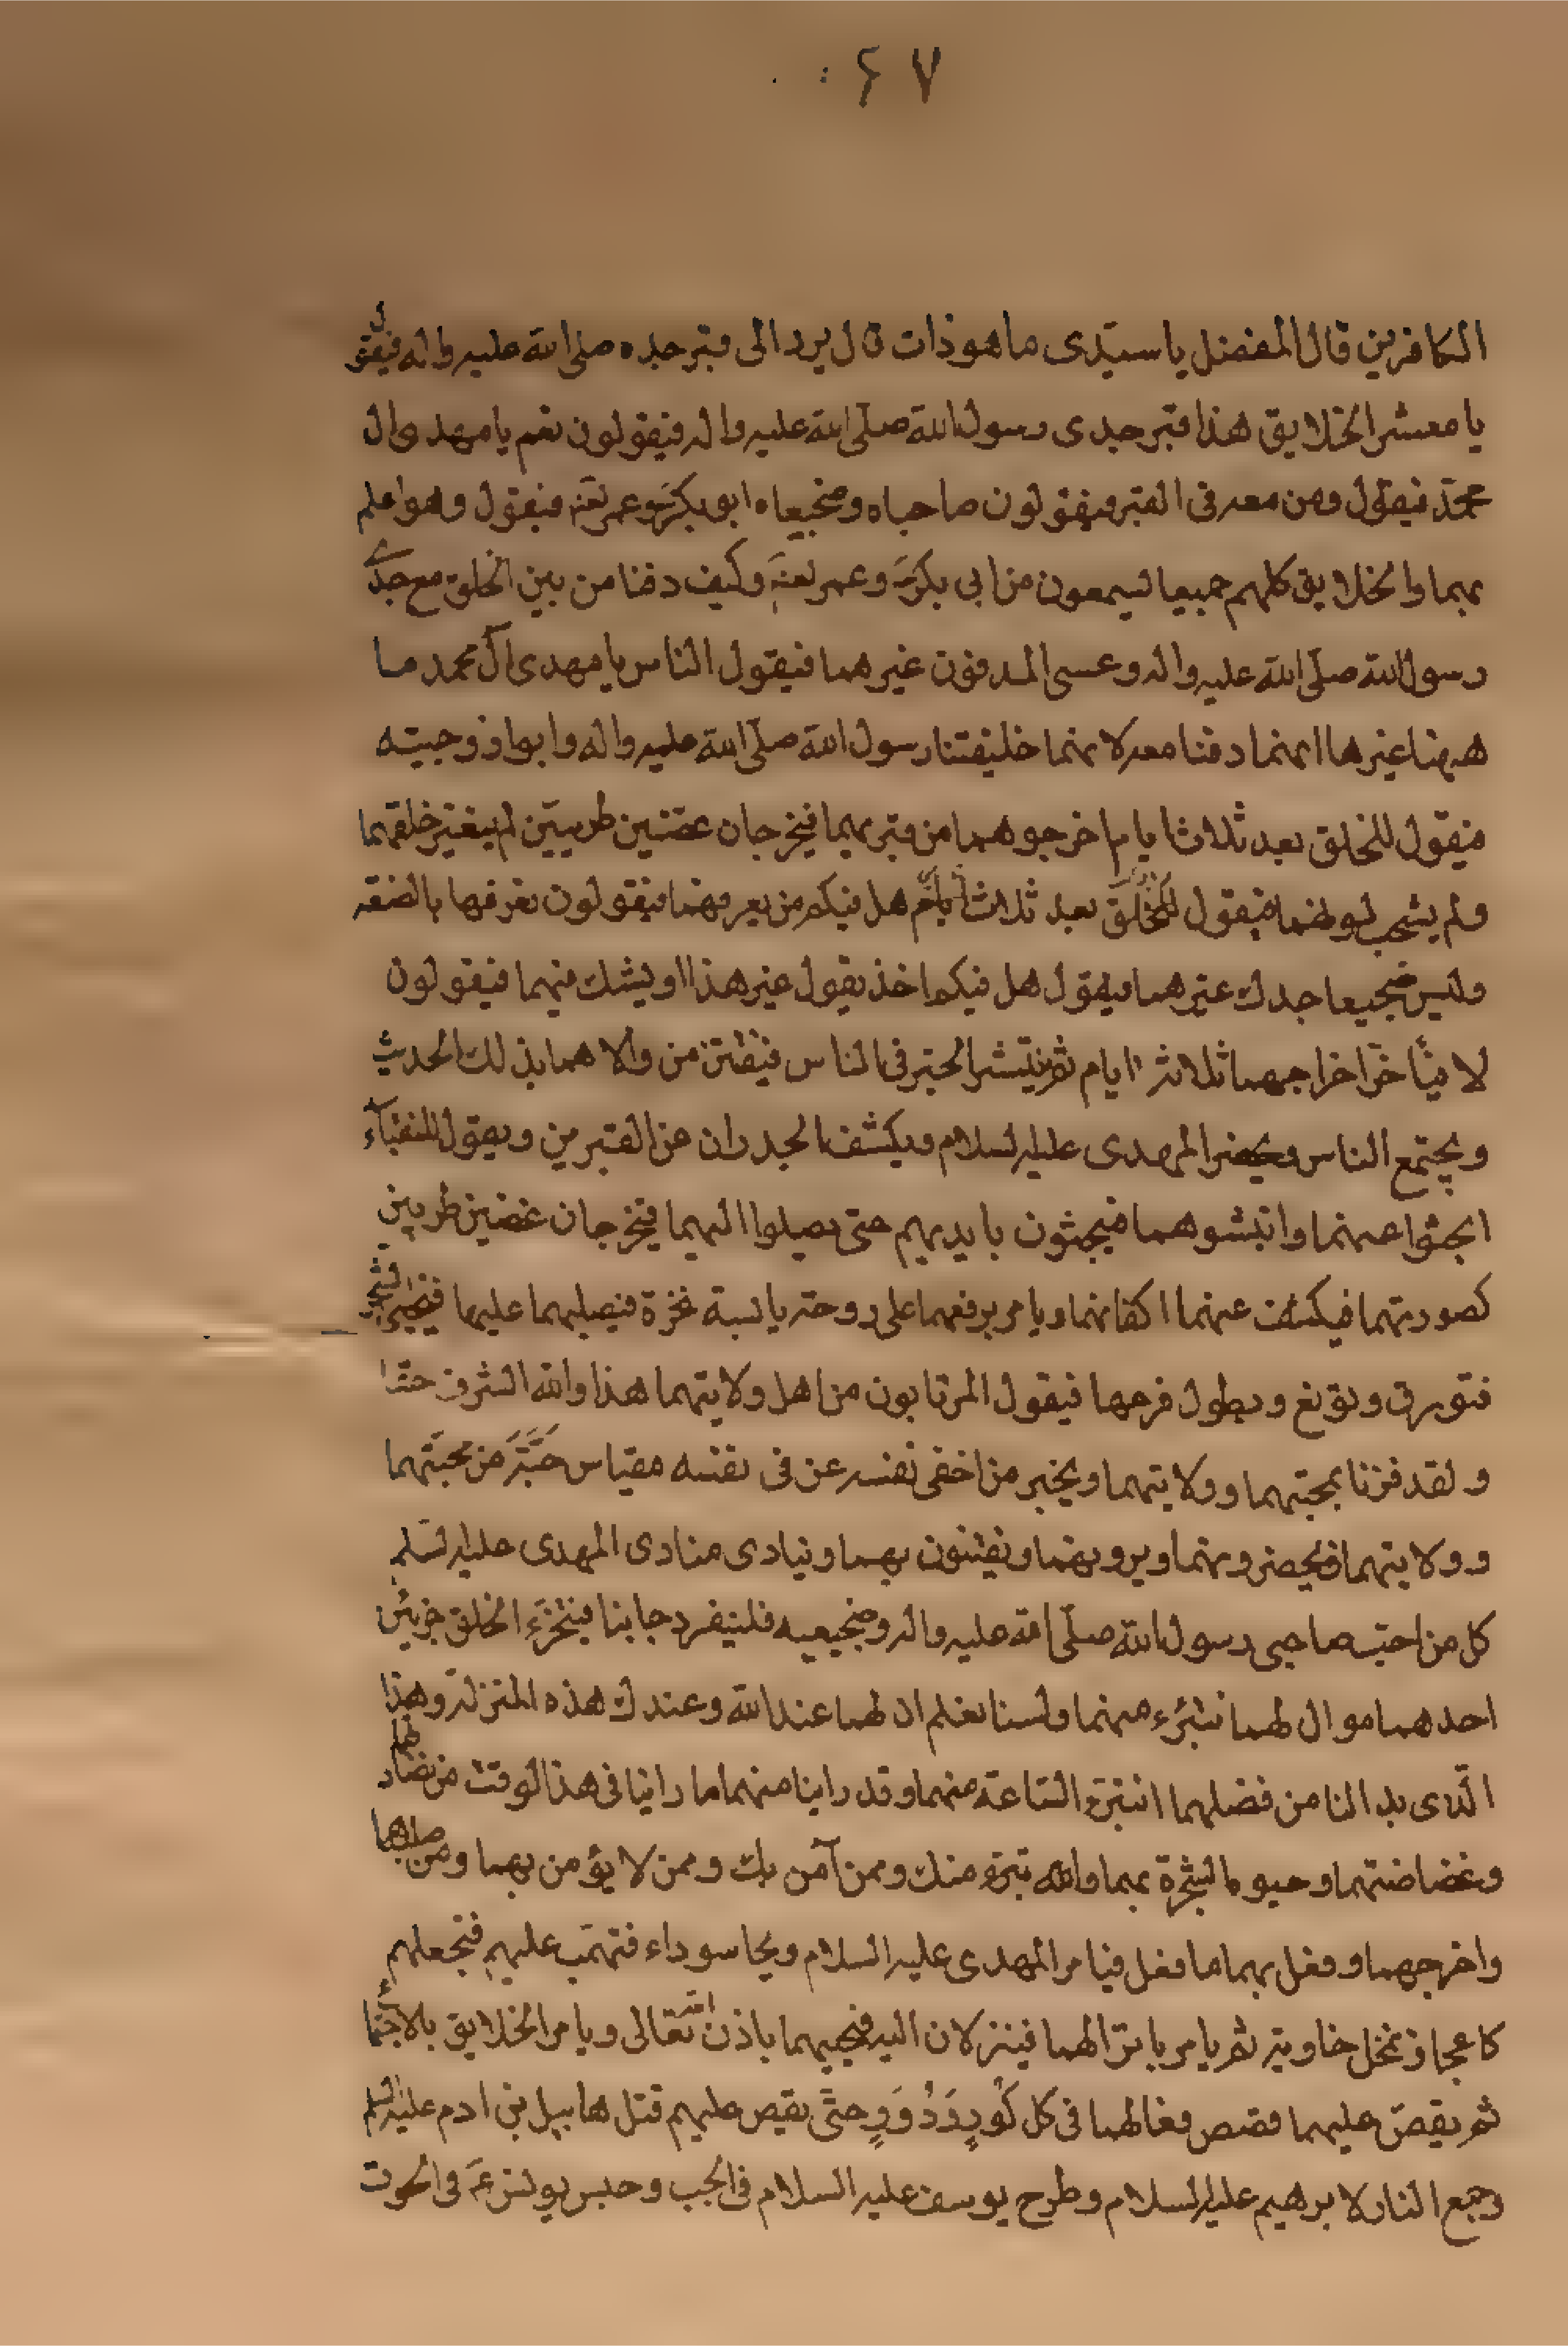 ٤٧
الكافرين قال المفضل يا سيدى ما هو ذات قال يرد الى قبر جده صلى الله عليه واله فيقول
يا معشر الخلايق هذا قبر جدى رسول الله صلى الله عليه واله فيقولون نعم يا مهدى ال
محمد فيقول ومن معه فى القبر فيقولون صاحباه وضجيعاه ابو بكر وعمر فيقول وهو اعلم
بهما والخلايق كلهم جميعا يسمعون من ابى بكر وعمر وكيف دفنا من بين الخلق مع جدى
رسول الله صلى الله عليه واله وعسى المدفون غيرهما فيقول الناس يا مهدى آل محمد ما
ههنا غيرها انهما دفنا معه لانهما خليفتنا رسول الله صلى الله عليه واله وابوا زوجيته
فيقول للخلق بعد ثلاث ايام اخرجوهما من قبريهما فيخرجان غضين طريين لم يتغير خلقهما
ولم يشحب لونهما فيقول للخلق بعد ثلاث ايام هل فيكم من يعرفهما فيقولون نعرفها بالصفه
وليس ضجيعا جدك غيرهما فيقول هل فيكم احد يقول غير هذا او يشك فيهما فيقولون
لا فيأخر اخراجهما ثلاثه ايام ثم ينتشر الخبر فى الناس فيفتتن من والاهما بذلك الحديث
ويجتمع الناس ويحضر المهدى عليه السلام ويكشف الجدران عن القبرين ويقول للنقبآء
ابحثوا عنهما وانبشوهما فيبحثون بايديهم حتى يصلوا اليهما فيخرجان غضين طريين
كصورتهما فيكشف عنهما اكفانهما ويامر برفعهما على دوحه يابسة نخرة فيصلبهما عليها فتحيى الشجر
فتورق وتونع ويطول فرعها فيقول المرتابون من اهل ولايتهما هذا والله الشرف حقا
ولقد فزنا بمحبتهما وولايتهما ويخبر من اخفى نفسه عن فى نفسه مقياس حبة من محبتهما
وولايتهما فيحضرونهما ويرونهما ويفتنون بهما وينادى منادى المهدى عليه السلم
كل من احب صاحبى رسول الله صلى الله عليه واله وضجيعيه فلينفرد جانبا فيتجزء الخلق جزئين
احدهما موال لهما نتبرء منهما ولسنا نعلم ان لهما عند الله وعندك هذه المنزلة وهذا
الذى بدا لنا من فضلهما انتبرء الساعة منهما وقد راينا منهما ما راينا فى هذا الوقت من نضارتهما
وغضاضتهما وحيوة الشجرة بهما والله نتبرء منك وممن آمن بك وممن لا يؤمن بهما ومن صلبهما
واخرجهما وفعل بهما ما فعل فيامر المهدى عليه السلام ريحا سوداء فتهب عليهم فتجعلهم
كاعجاز نخل خاويه ثم يامر بانزالهما فينزلان اليه فيحييهما باذن الله تعالى ويامر الخلايق بالاجتماع
ثم يقص عليهما قصص فعالهما فى كل كور ودور حتى يقص عليهم قتل هابيل بن ادم عليه السلم
وجمع النار لابرهيم عليه السلام وطرح يوسف عليه السلام فى الجب وحبس يونس ع فى الحوت